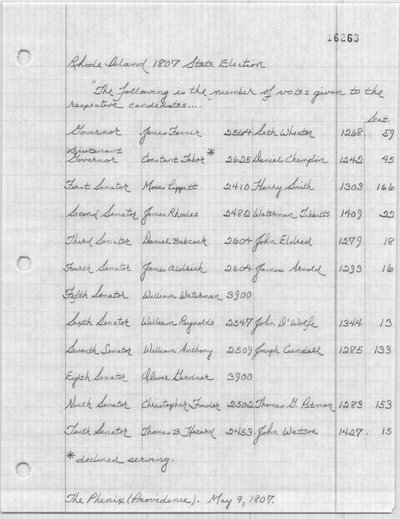 16263
Rhode Island 1807 State Election
"The following is the number of votes given to the
respective candidates...."
Scat.
Governor James Fenner 2564 Seth Wheaton 1268. 59
Lieutenant
Governor Constant Tabor * 2625 Daniel Champlin 1242 45
First Senator Moses Lippitt 2410 Henry Smith 1303 166
Second Senator James Rhodes 2482 Waterman Tibbitts 1409 22
Third Senator Daniel Babcock 2604 John Eldred 1279 18
Fourth Senator James Aldrich 2604 James Arnold 1293 16
Fifth Senator William Waterman 3900
Sixth Senator William Reynolds 2547 John D'Wolfe 1344 13
Seventh Senator William Anthony 2509 Joseph Cundall 1285 133
Eighth Senator Oliver Gardner 3900
Ninth Senator Christopher Fowler 2302 Thomas G. Pitman 1283 153
Tenth Senator Thomas B. Hazard 2453 John Watson 1427. 15
* declined serving.
The Phenix (Providence). May 9, 1807.